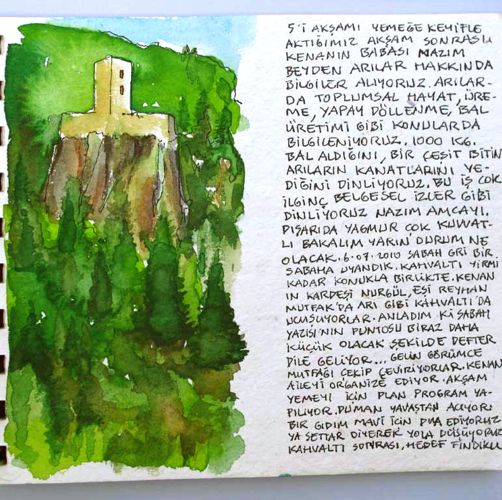 5'İ AKŞAMI YEMEĞE KEYİFLE
AKTIĞIMIZ AKŞAM SONRASI
KENANIN BABASI NAZIM
BEYDEN ARILAR HAKKINDA
BİLGİLER ALIYORUZ. ARILAR-
DA TOPLUMSAL HAYAT, ÜRE-
ME, YAPAY DÖLLENME, BAL
ÜRETİMİ GİBİ KONULARDA
BİLGİLENİYORUZ. 1000 KG.
BAL ALDIĞINI, BİR ÇEŞİT BİTİN
ARILARIN KANATLARINI YE-
DİĞİNİ DİNLİYORUZ. BU İŞ ÇOK
İLGİNÇ BELGESEL İZLER GİBİ
DİNLİYORUZ NAZIM AMCAYI.
DIŞARIDA YAĞMUR ÇOK KUVVAT-
LI BAKALIM YARIN DURUM NE
OLACAK. 6.07.2010 SABAH GRİ BİR
SABAHA UYANDIK. KAHVALTI YİRMİ
KADAR KONUKLA BİRLİKTE. KENAN-
IN KARDEŞİ NURGÜL, EŞİ REYHAN
MUTFAK'DA ARI GİBİ KAHVALTI'DA
UÇUŞUYORLAR. ANLADIM Kİ SABAH
YAZISI'NIN PUNTOSU BİRAZ DAHA
KÜÇÜK OLACAK ŞEKİLDE DEFTER
DİLE GELİYOR... GELİN GÖRÜMCE
MUTFAĞI ÇEKİP ÇEVİRİYORLAR. KENAN
AİLEYİ ORGANİZE EDİYOR. AKŞAM
YEMEYİ İÇİN PLAN PROGRAM YA-
PILIYOR. DUMAN YAVAŞTAN AÇIYOR.
BİR GIDIM MAVİ İÇİN DUA EDİYORUZ
YA SETTAR DİYEREK YOLA DÜŞÜYORUZ
KAHVALTI SONRASI, HEDEF FINDIKLI